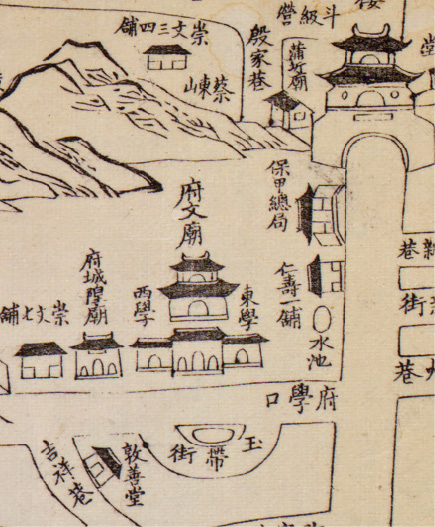 斗級營
殷家巷
蒲圻廟
崇文三四舖
蔡東山
堂
保甲總局
府文廟
府城隍廟
西學
東學
仁壽一舖
水池
崇文七舖
巷
街
巷
府學口
玉帶街
敦善堂
吉祥巷